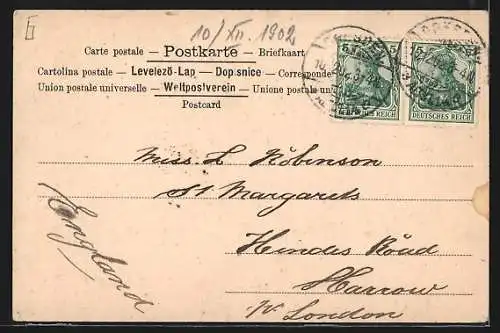 10/XII. 1902
Carte postale — Postkarte — Briefkaart
Cartolina postale — Levelező-Lap — Dopisnice — Corresponden
Union postale universelle — Weltpostverein — Unione postale un
Postcard
5 5
DEUTSCHES REICH DEUTSCHES REICH
Miss. L Robinson
St Margarets
Hindes Road
Harrow
nr London
England